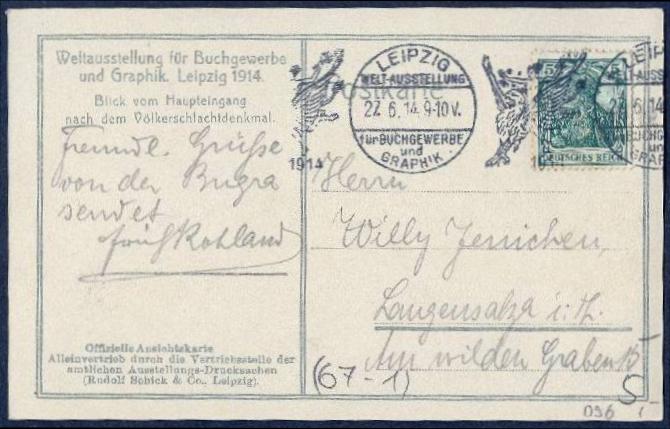 Weltausstellung für Buchgewerbe
und Graphik. Leipzig 1914.
Blick vom Haupteingang
nach dem Völkerschlachtdenkmal.
Freundl. Grüße
von der Bugra
sendet
Kohland
Offizielle Ansichtskarte
Alleinvertrieb durch die Vertriebsstelle der
amtlichen Ausstellungs-Drucksachen
(Rudolf Schick & Co., Leipzig).
Postkarte
1914
LEIPZIG
WELT-AUSSTELLUNG
22.6.14.9-10V.
für BUCHGEWERBE
und
GRAPHIK.
5
DEUTSCHES REICH
LEIPZIG
Herrn
Willy Jenichen,
Langensalza i. Th.
Am wilden Graben 15
(67-1)
S
096